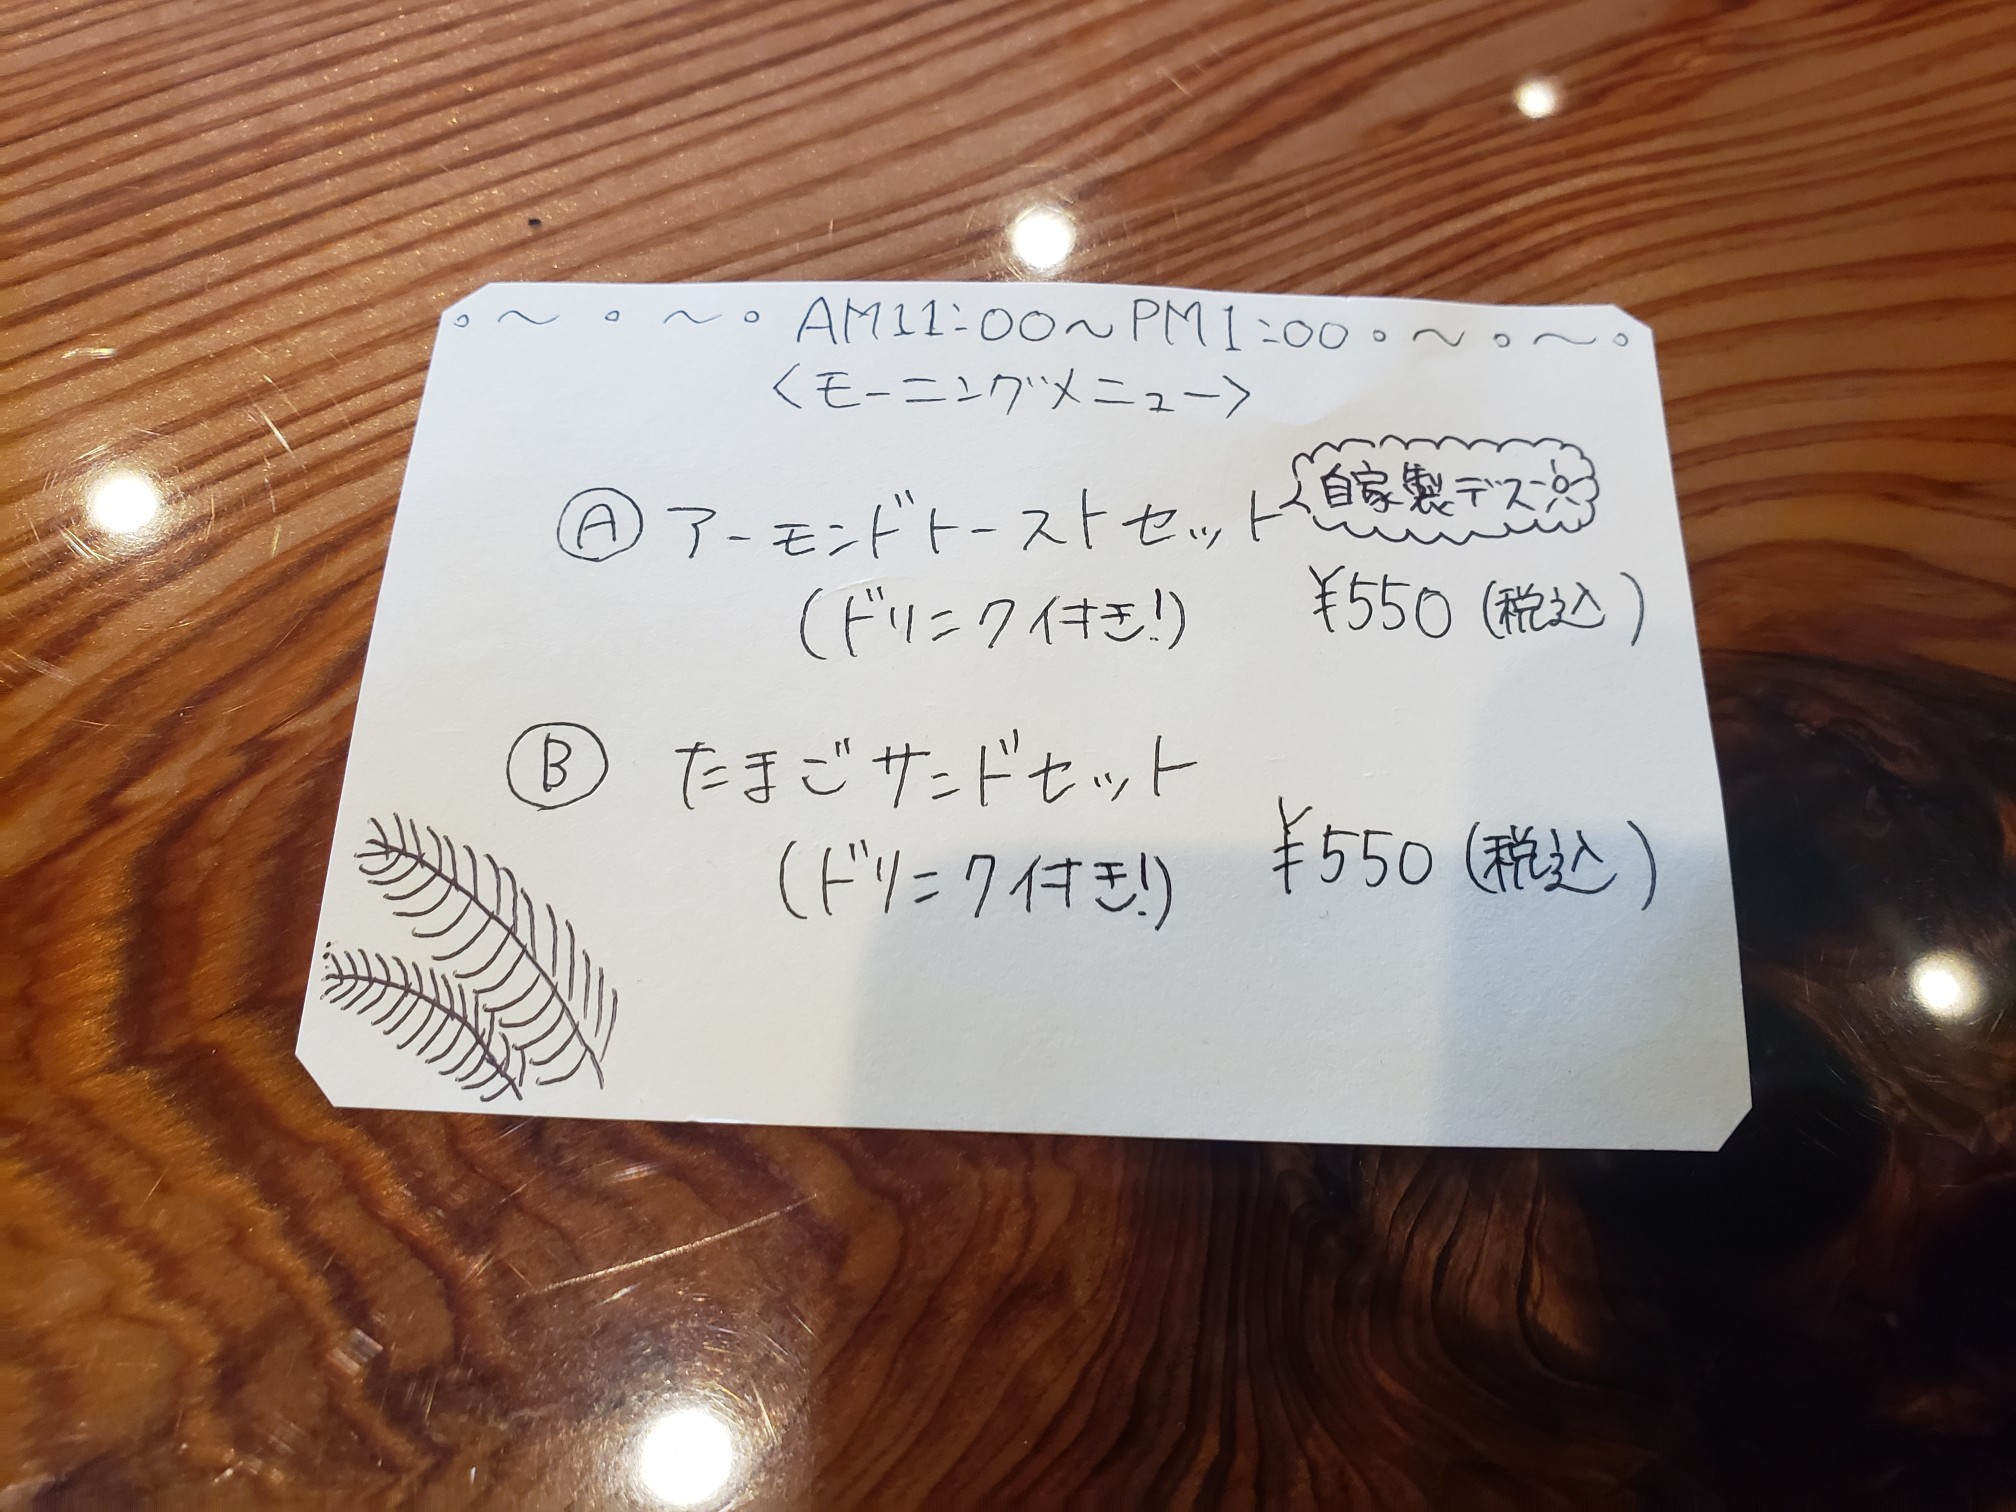 AM11:00～PM1:00
<モーニングメニュー>
自家製デス
Ⓐ アーモンドトーストセット
(ドリンク付き!) ¥550 (税込)
Ⓑ たまごサンドセット
(ドリンク付き!) ¥550 (税込)